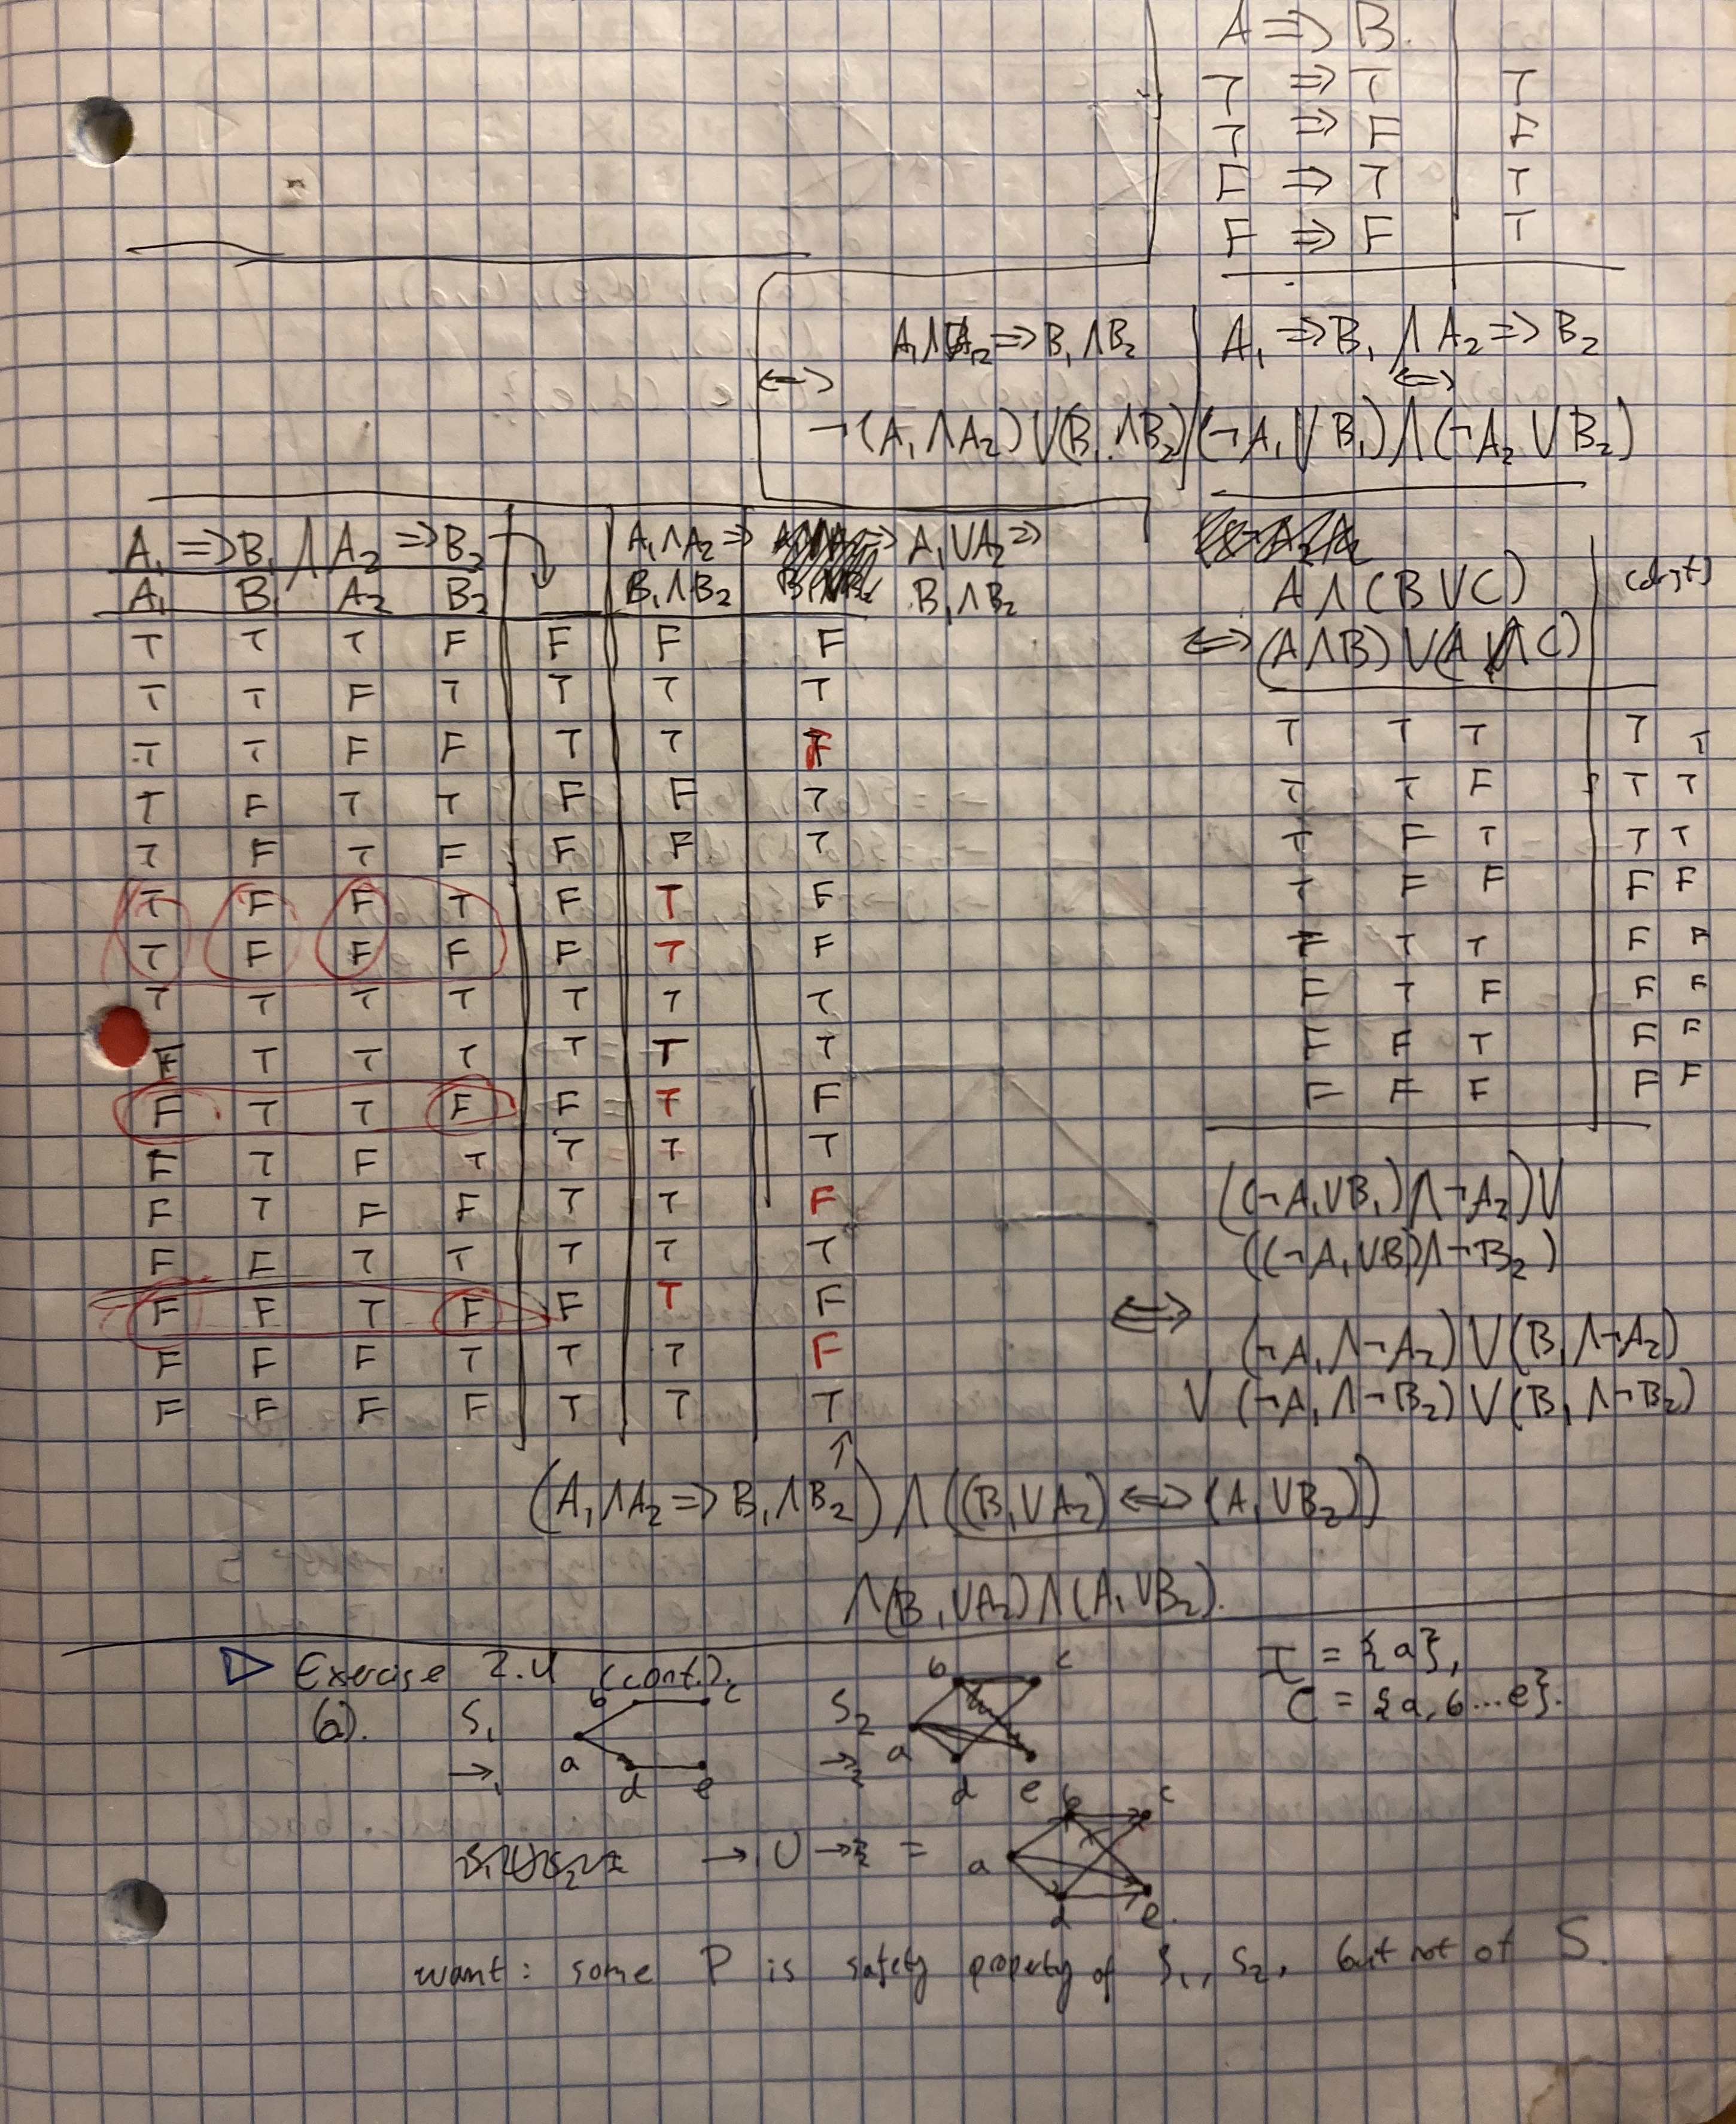 A => B.
T => T T
T => F F
F => T T
F => F T
A₁∧A₂ => B₁∧B₂ A₁ => B₁ ∧ A₂ => B₂
<-> <->
¬(A₁∧A₂)∨(B₁∧B₂) (¬A₁∨B₁)∧(¬A₂∨B₂)
A₁ => B₁ ∧ A₂ => B₂ A₁∧A₂ => A₁∨A₂ =>
A₁ B₁ A₂ B₂ B₁∧B₂ B₁∧B₂
T T T F F F F
T T F T T T T
T T F F T T F
T F T T F F T
T F T F F F T
T F F T F T F
T F F F F T F
T T T T T T T
F T T T T T T
F T T F F T F
F T F T T T T
F T F F T T F
F F T T T T T
F F T F F T F
F F F T T T F
F F F F T T T
↑
A∧(B∨C)
<=> (A∧B)∨(A∧C)
T T T T T
T T F T T
T F T T T
T F F F F
F T T F F
F T F F F
F F T F F
F F F F F
((¬A₁∨B₁)∧¬A₂)∨
((¬A₁∨B₁)∧¬B₂)
<=> (¬A₁∧¬A₂)∨(B₁∧¬A₂)
∨(¬A₁∧¬B₂)∨(B₁∧¬B₂)
(A₁∧A₂ => B₁∧B₂)∧((B₁∨A₂) <=> (A₁∨B₂))
∧(B₁∨A₂)∧(A₁∨B₂).
▷ Exercise 2.4 (cont.).
(a). S₁ a b c d e
→₁
S₂ a b c d e
→₂
I = {a},
C = {a, b...e}.
→₁ ∪ →₂ = a b c d e.
want: some P is safety property of S₁, S₂, but not of S.